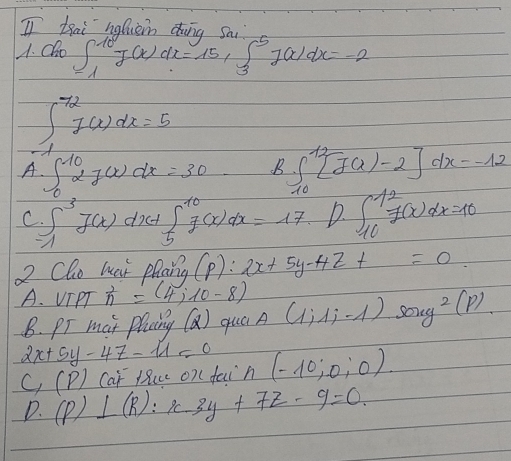 II trắc nghiệm đúng sai
1. Cho ∫_{-1}^{10} f(x) dx = 15, ∫_{3}^{5} f(x) dx = -2
∫_{-1}^{12} f(x) dx = 5
A. ∫_{0}^{10} 2f(x) dx = 30 B. ∫_{10}^{12} [f(x) - 2] dx = -12
C. ∫_{-1}^{3} f(x) dx + ∫_{5}^{10} f(x) dx = 17. D. ∫_{10}^{12} f(x) dx = 10
2 Cho mặt phẳng (P): 2x + 5y - 4z + = 0.
A. VTPT n⃗ = (4; 10 - 8)
B. PT mặt phẳng (α) qua A (1; 1; -1) song² (P).
2x + 5y - 4z - 11 = 0
C, (P) cắt trục ox tại n (-10; 0; 0).
D. (P) ⊥ (R): x - 3y + 7z - 9 = 0.